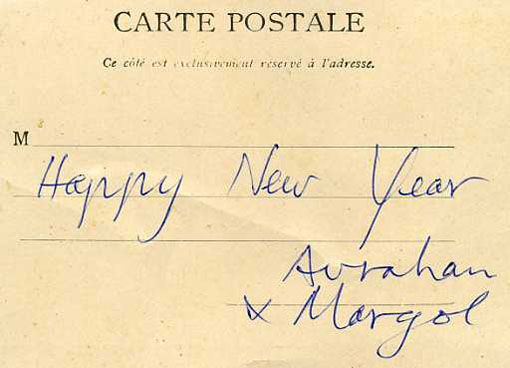 CARTE POSTALE
Ce côté est exclusivement réservé à l'adresse.
M
Happy New Year
Avrahan
& Margol